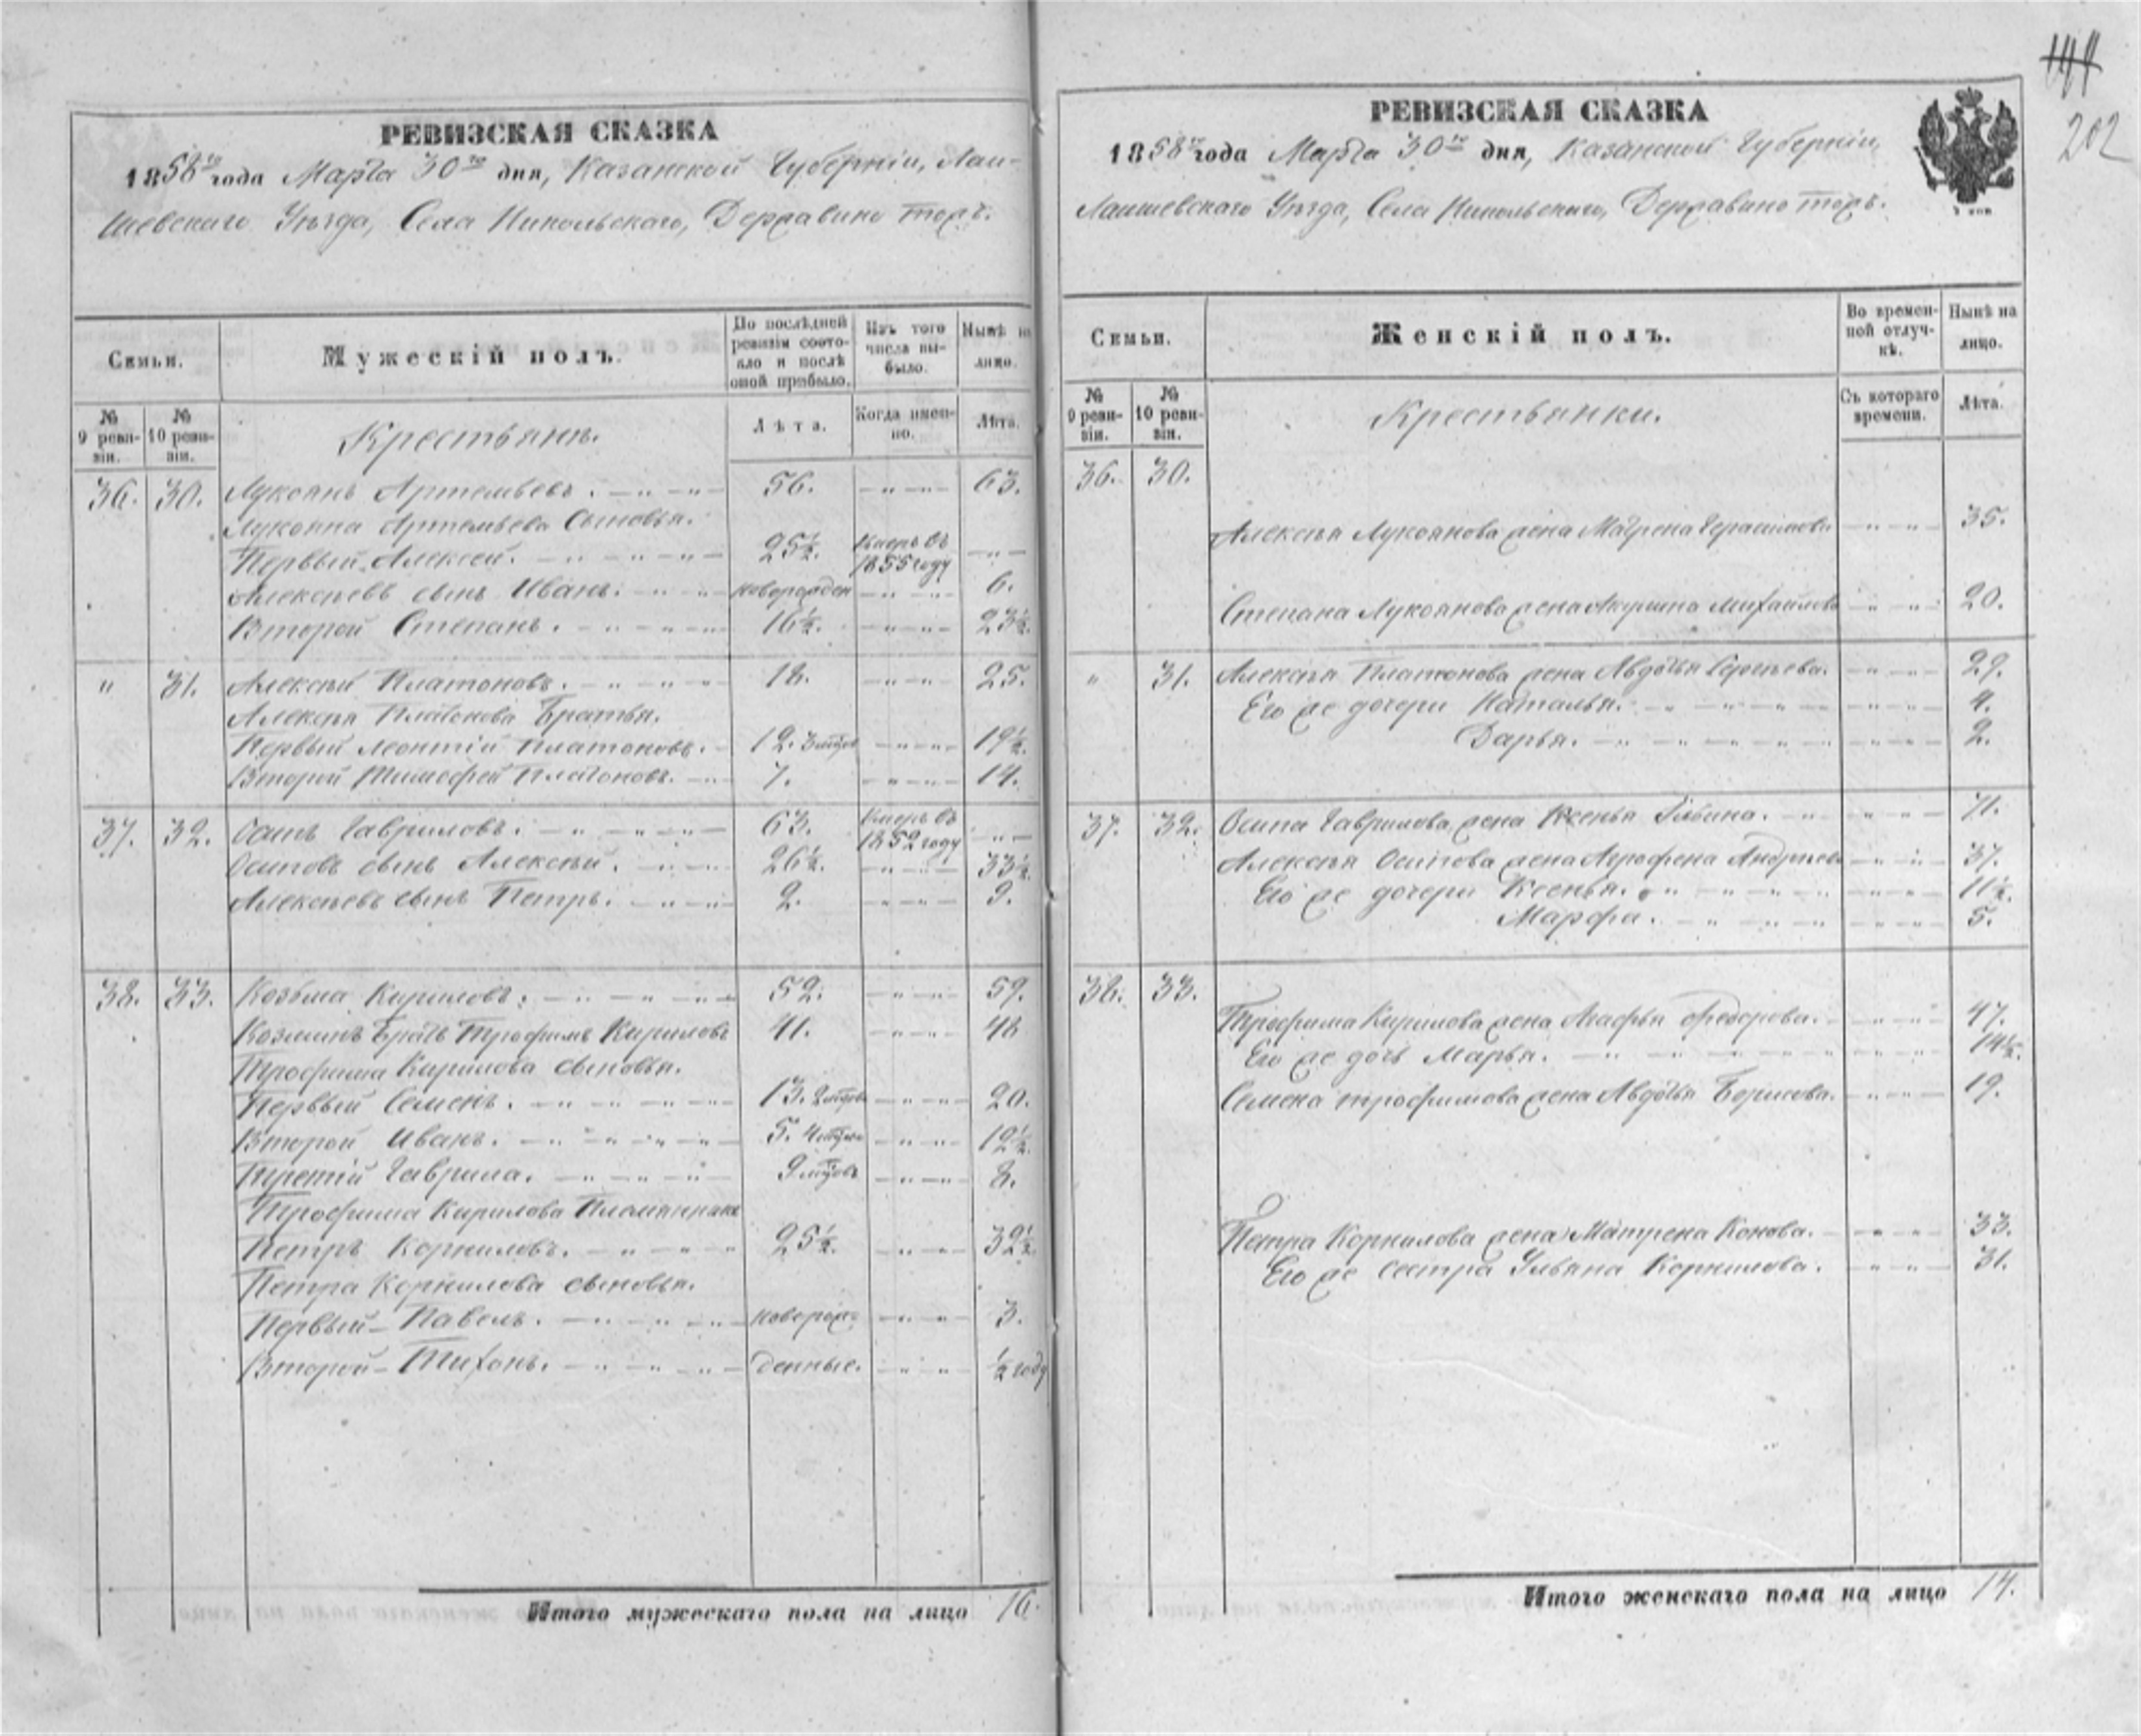 РЕВИЗСКАЯ СКАЗКА
1858го года Марта 30го дня, Казанской Губерніи, Лаи-
шевскаго Уѣзда, Села Никольскаго, Державино тожъ.
Семьи.
Мужескій полъ.
По послѣдней ревизіи состояло и послѣ оной прибыло.
Изъ того числа выбыло.
Нынѣ на лицо.
№ 9 ревизіи.
№ 10 ревизіи.
Крестьянъ.
Лѣта.
Когда именно.
Лѣта.
36. 30. Лукоянъ Артемьевъ. 56. 63.
Лукояна Артемьева Сыновья.
Первый Алексей. 25½. Умеръ въ 1855 году
Алексѣевъ сынъ Иванъ. новорожден 6.
Второй Степанъ. 16½. 23½.
" 31. Алексѣй Платоновъ. 18. 25.
Алексѣя Платонова Братья.
Первый Леонтій Платоновъ. 12. 3 мѣсяц 19½.
Второй Тимофей Платоновъ. 7. 14.
37. 32. Осипъ Гавриловъ. 63. Умеръ въ 1852 году
Осиповъ сынъ Алексѣй. 26½. 33½.
Алексѣевъ сынъ Петръ. 2. 9.
38. 33. Козьма Кириловъ. 52. 59.
Козминъ Братъ Трофимъ Кириловъ 41. 48
Трофима Кирилова сыновья.
Первый Семенъ. 13. 2 мѣсяц 20.
Второй Иванъ. 5. 4 мѣсяц 12½.
Третій Гаврила. 9 мѣсяц 8.
Трофима Кирилова Племянникъ
Петръ Корниловъ. 25½. 32½.
Петра Корнилова сыновья.
Первый - Павелъ. новорож- 3.
Второй - Тихонъ. денные. ½ году
Итого мужескаго пола на лицо 16.
144
202
РЕВИЗСКАЯ СКАЗКА
1858го года Марта 30го дня, Казанской Губерніи,
Лаишевскаго Уѣзда, Села Никольскаго, Державино тожъ.
Семьи.
Женскій полъ.
Во временной отлучкѣ.
Нынѣ на лицо.
№ 9 ревизіи.
№ 10 ревизіи.
Крестьянки.
Съ котораго времени.
Лѣта.
36. 30.
Алексѣя Лукоянова жена Матрена Герасимова 35.
Степана Лукоянова жена Акулина Михайлова 20.
" 31. Алексѣя Платонова жена Авдотья Сергѣева. 29.
Его же дочери Наталья. 4.
Дарья. 2.
37. 32. Осипа Гаврилова жена Ксенья Ильина. 71.
Алексѣя Осипова жена Агрофена Андрѣева 37.
Его же дочери Ксенья. 11½.
Марфа. 5.
38. 33.
Трофима Кирилова жена Агафья Федорова. 47.
Его же дочь Марья. 14½.
Семена Трофимова жена Авдотья Борисова. 19.
Петра Корнилова жена Матрена Конова. 33.
Его же сестра Ульяна Корнилова. 31.
Итого женскаго пола на лицо 14.